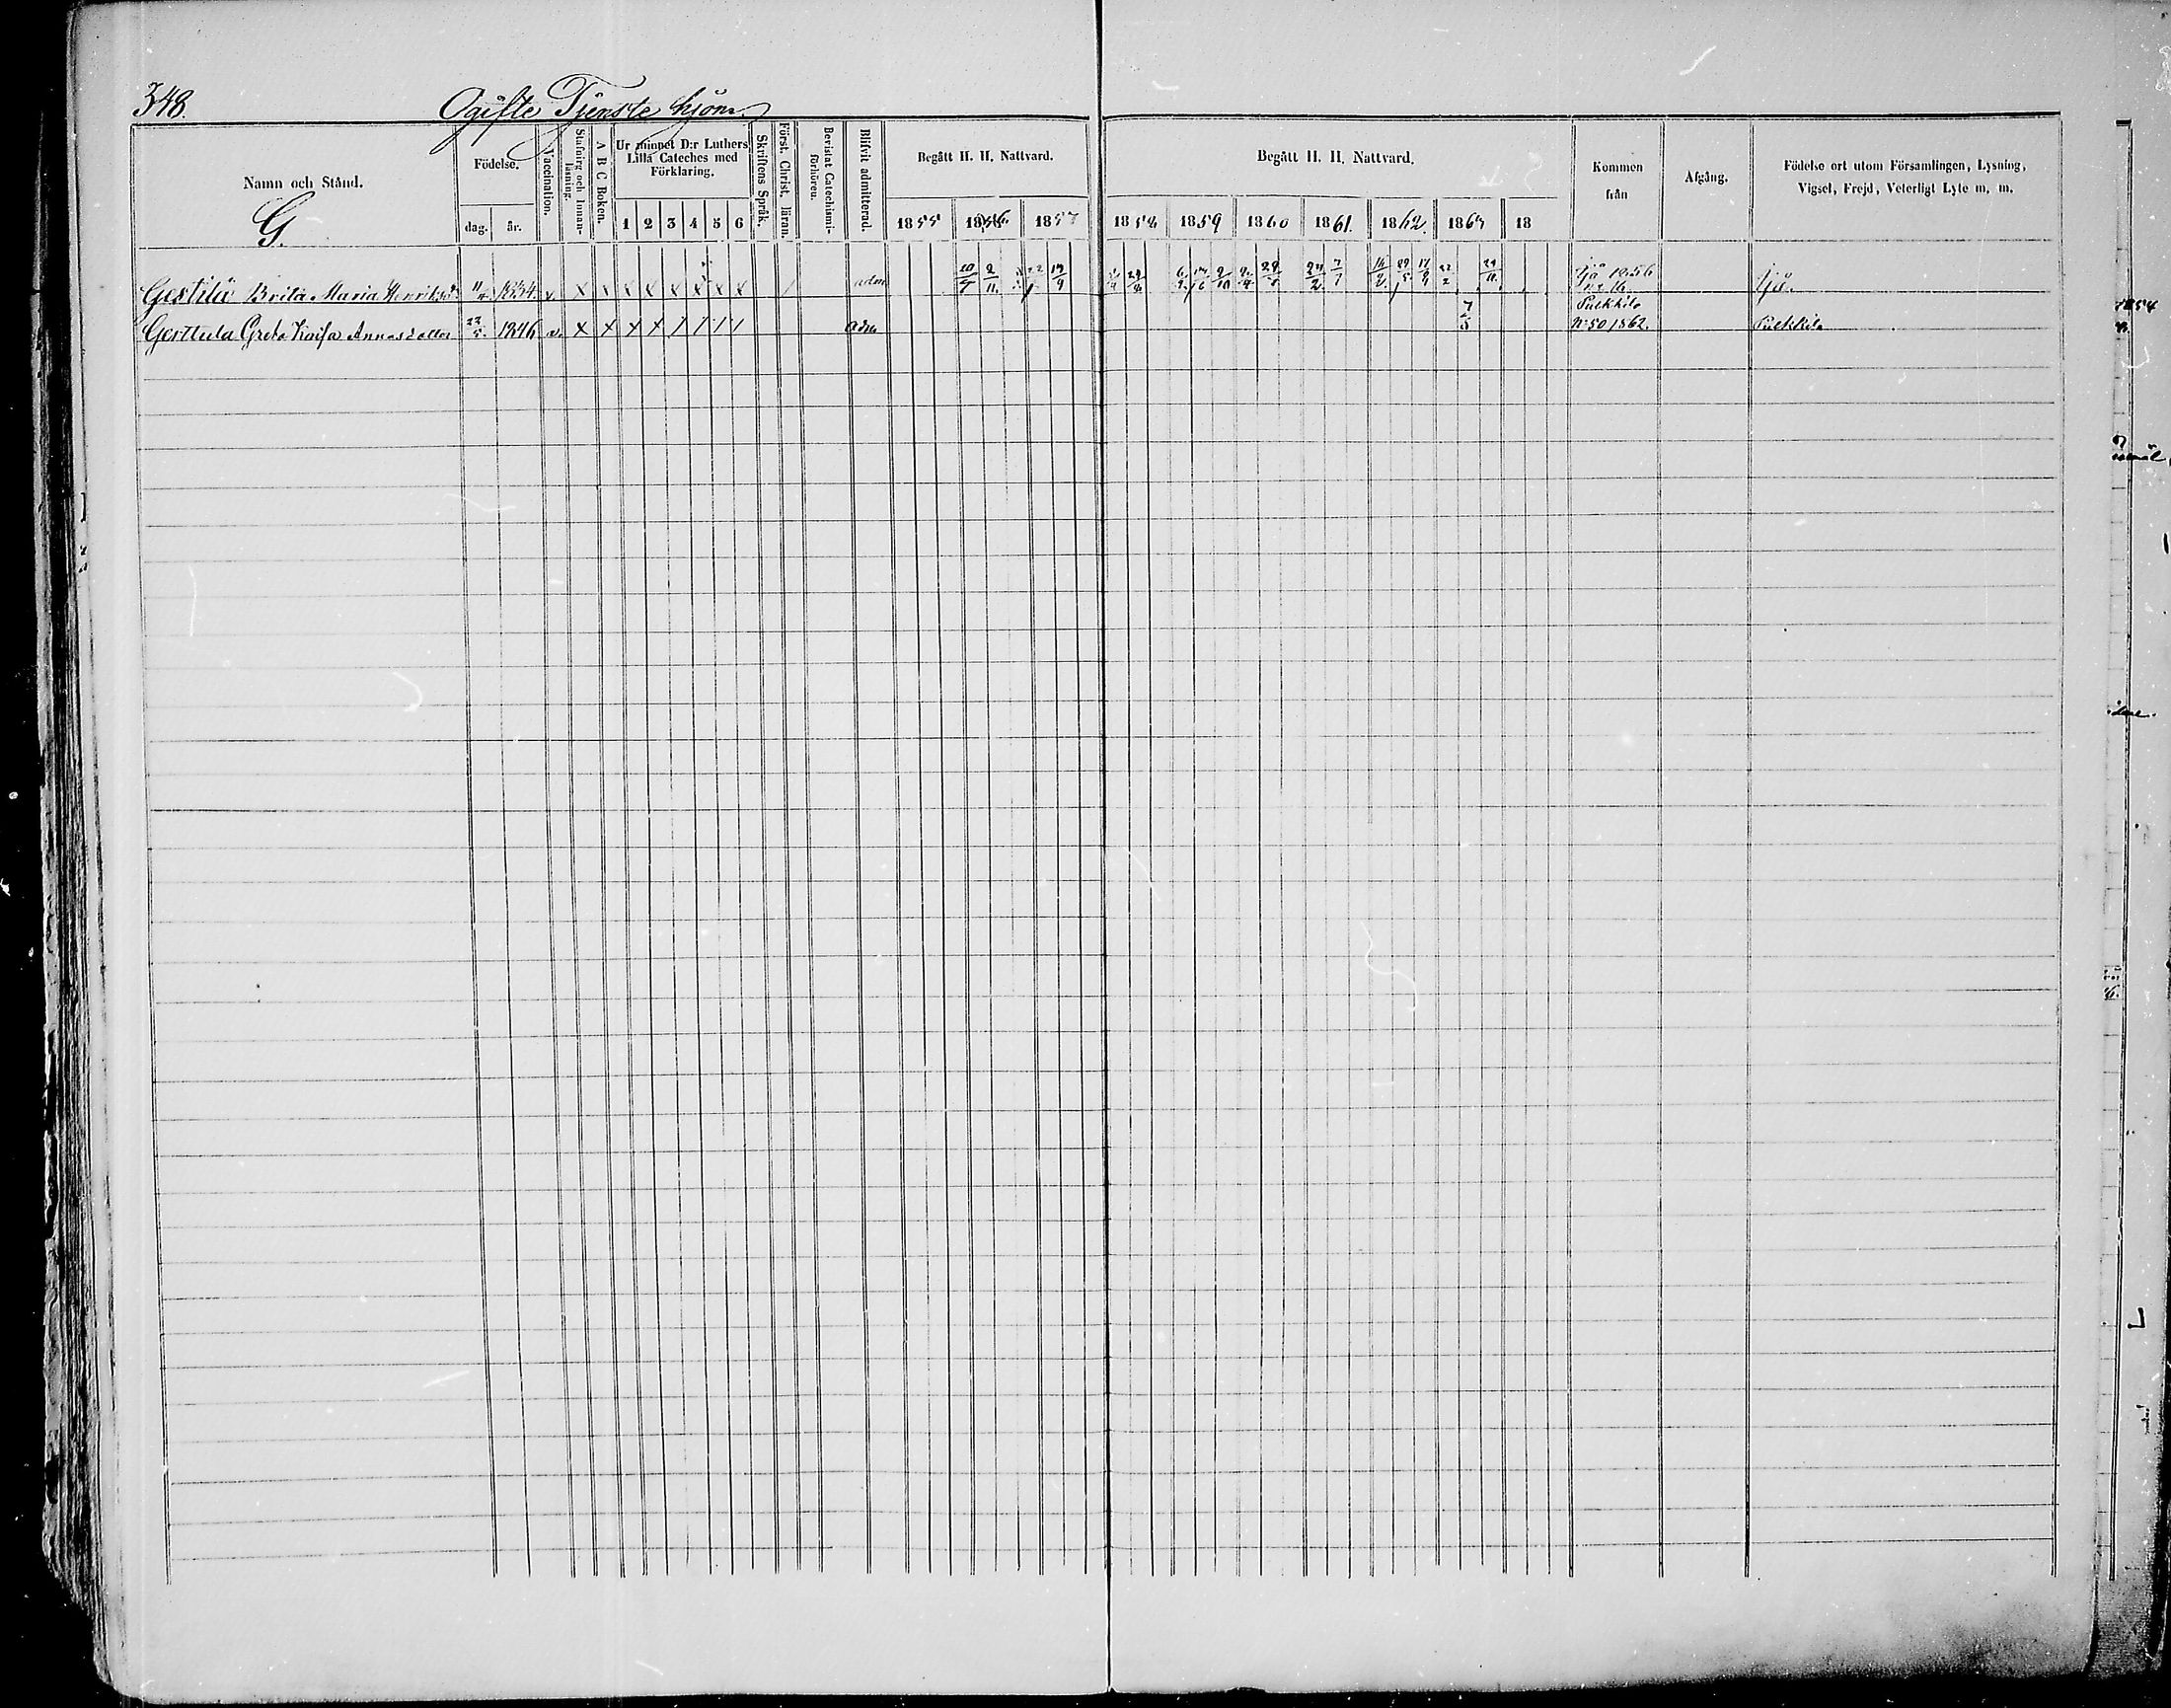 348.
Ogifte Tjenste hjon
Namn och Stånd.
G.
Födelse.
dag. år.
Vaccination.
Stafning och Innan-läsning.
A B C Boken.
Ur minnet D:r Luthers Lilla Cateches med Förklaring.
1 2 3 4 5 6
Skriftens Språk.
Först. Christ. läran.
Bevistat Catechismi-förhören.
Blifvit admitterad.
Begått H. H. Nattvard.
1855 1856 1857
Begått H. H. Nattvard.
1858 1859 1860 1861. 1862. 1863 18
Kommen från
Afgång.
Födelse ort utom Församlingen, Lysning, Vigsel, Frejd, Veterligt Lyte m. m.
Gestilä Brita Maria Henriksd. 11 1834. v. X X X X X X X X adm 9/11 19/9 24/2 7/7 Ijå 1856 No 16 Ijå.
Gerttula Greta Kaisa Annasdotter 22/5. 1846 v. X X X X / / / / adm 7/5 Pulkkila No 50 1862. Pulkkila